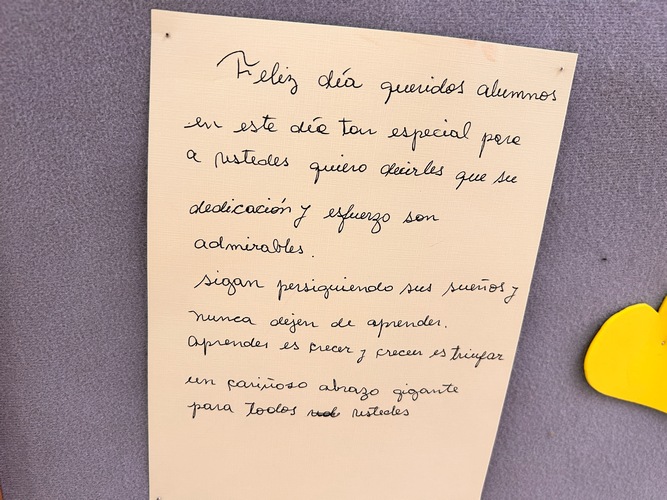 Feliz día queridos alumnos
en este día tan especial para
a ustedes quiero decirles que su
dedicación y esfuerzo son
admirables.
sigan persiguiendo sus sueños y
nunca dejen de aprender.
aprender es crecer y crecer es triunfar
un cariñoso abrazo gigante
para todos ustedes